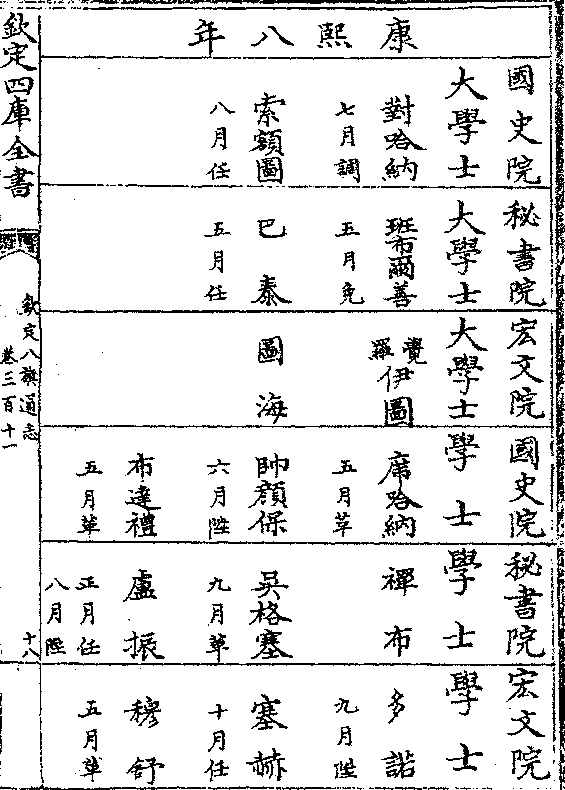 康熙八年
國史院大學士
對哈納
七月調
索額圖
八月任
秘書院大學士
班布爾善
五月免
巴泰
五月任
宏文院大學士
覺羅伊圖
圖海
國史院學士
席哈納
五月革
帥顔保
六月陞
布達禮
五月革
秘書院學士
禪布
吳格塞
九月革
盧振
正月任
八月陞
宏文院學士
多諾
九月陞
塞赫
十月任
穆舒
五月革
欽定四庫全書
欽定八旗通志
卷三百十一
十八